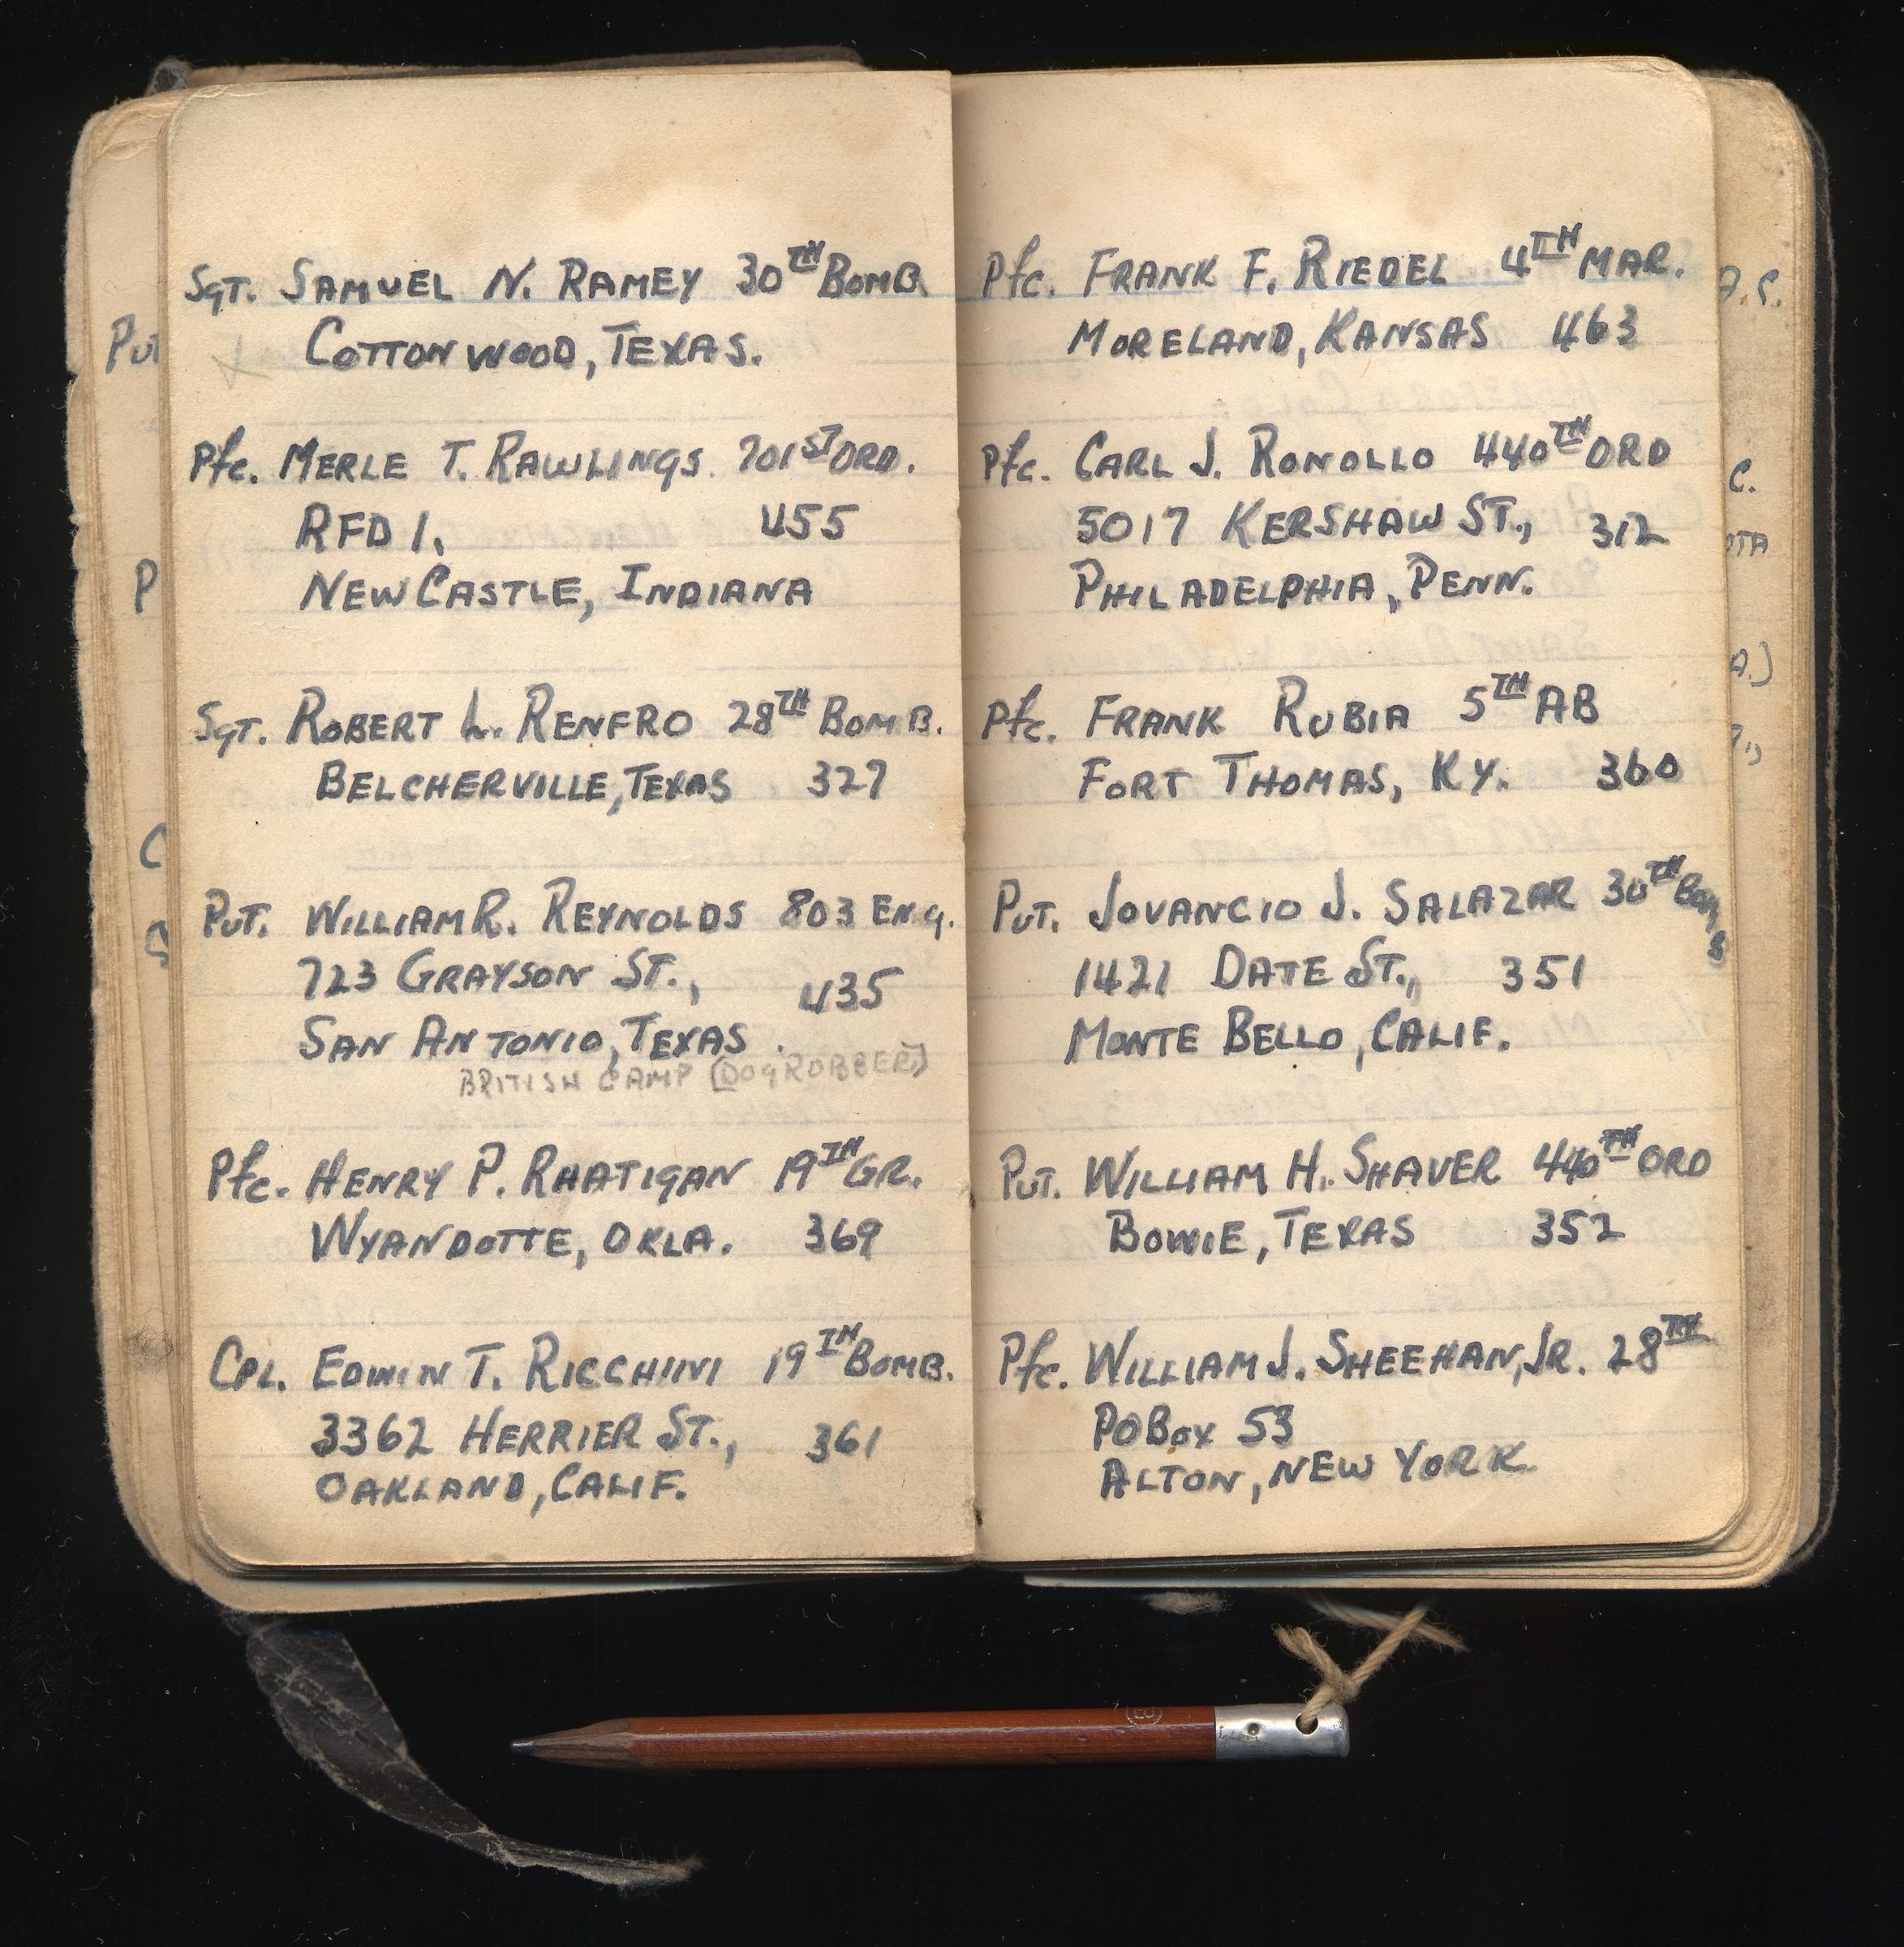 Sgt. Samuel N. Ramey 30TH Bomb.
Cottonwood, Texas.
Pfc. Merle T. Rawlings. 701ST Ord.
RFD 1. 455
New Castle, Indiana
Sgt. Robert L. Renfro 28TH Bomb.
Belcherville, Texas 327
Pvt. William R. Reynolds 803 Eng.
723 Grayson St., 435
San Antonio, Texas.
British Camp (Dog Robber)
Pfc. Henry P. Rhatigan 19TH Gr.
Wyandotte, Okla. 369
Cpl. Edwin T. Ricchini 19TH Bomb.
3362 Herrier St., 361
Oakland, Calif.
Pfc. Frank F. Riedel 4TH Mar.
Moreland, Kansas 463
Pfc. Carl J. Ronollo 440TH Ord
5017 Kershaw St., 312
Philadelphia, Penn.
Pfc. Frank Rubia 5TH AB
Fort Thomas, Ky. 360
Pvt. Jovancio J. Salazar 30TH Bomb
1421 Date St., 351
Monte Bello, Calif.
Pvt. William H. Shaver 440TH Ord
Bowie, Texas 352
Pfc. William J. Sheehan, Jr. 28TH
PO Box 53
Alton, New York